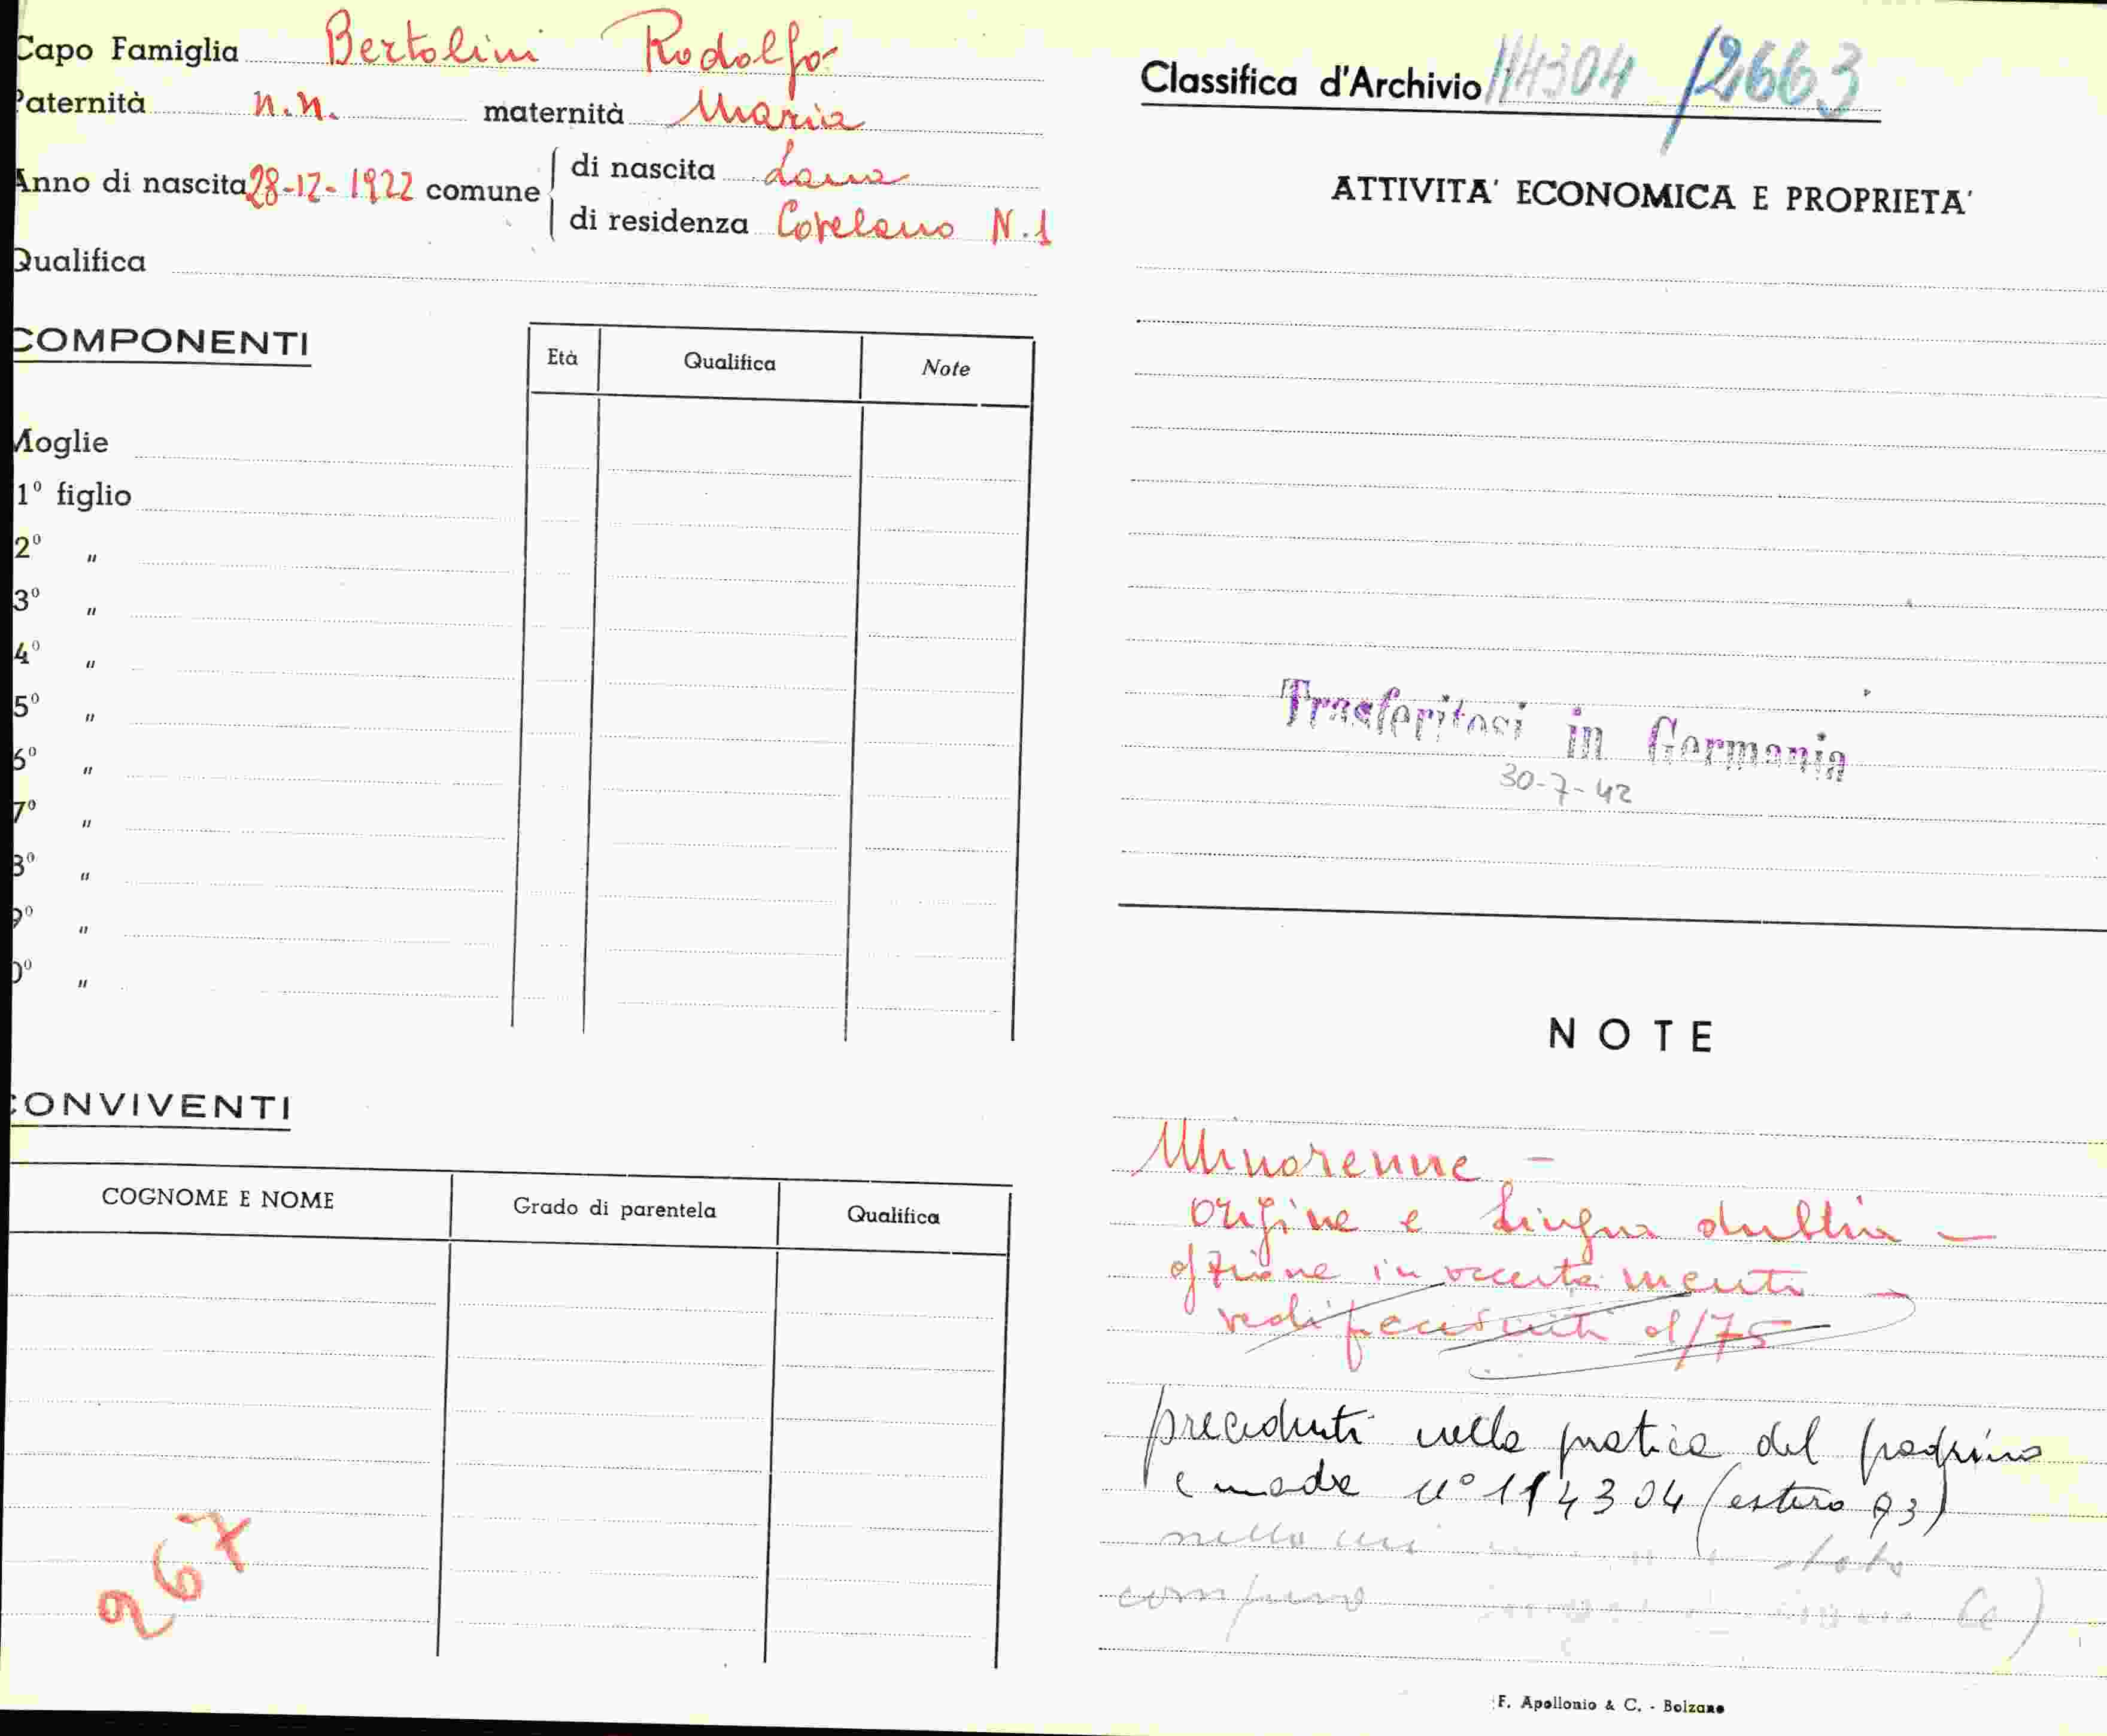 Capo Famiglia Bertolini Rodolfo
Paternità n.n. maternità Maria
Anno di nascita 28-12-1922 comune
di nascita Lana
di residenza Covelano N.1
Qualifica
COMPONENTI
Età Qualifica Note
Moglie
1º figlio
2º "
3º "
4º "
5º "
6º "
7º "
8º "
9º "
0º "
CONVIVENTI
COGNOME E NOME Grado di parentela Qualifica
267
Classifica d'Archivio 114304 /2663
ATTIVITA' ECONOMICA E PROPRIETA'
Trasferitosi in Germania
30-7-42
NOTE
Minorenne -
origine e lingua dubbia -
opzione in accertamenti -
vedi precedenti d/75
precedenti nella pratica del padrino
e madre nº 114304 (estero 93)
nella
F. Apollonio & C. - Bolzano